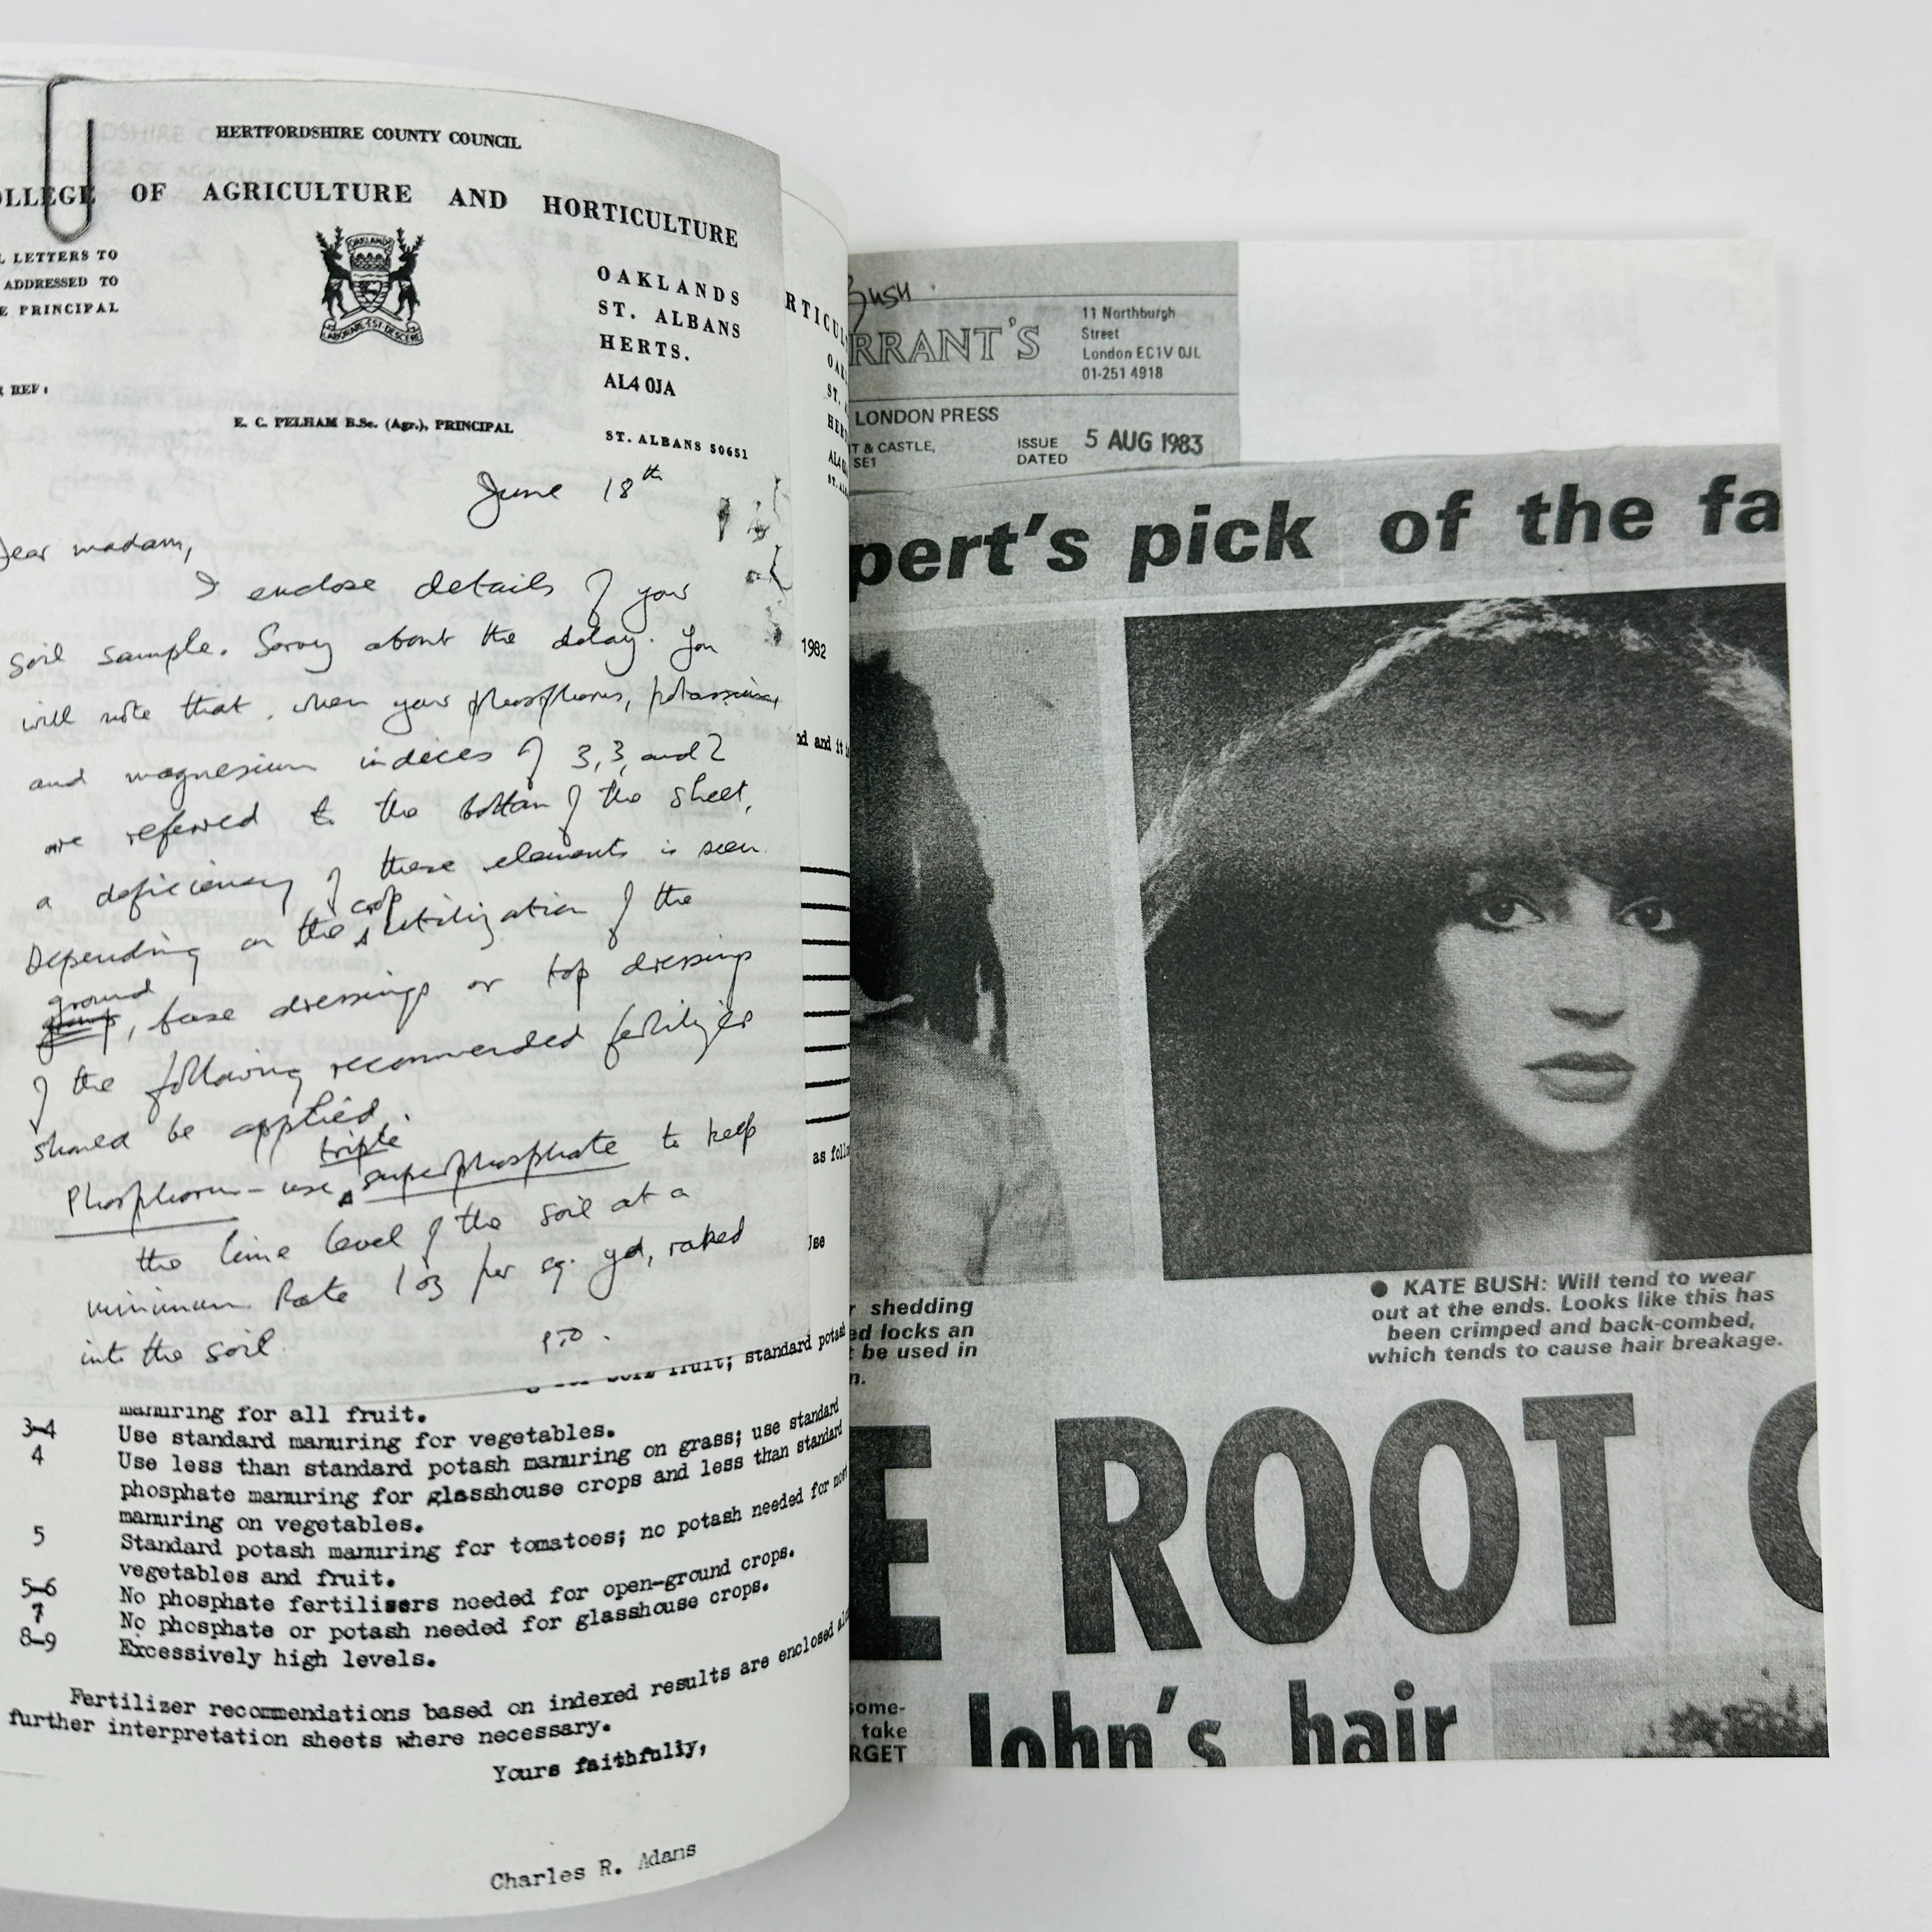 HERTFORDSHIRE COUNTY COUNCIL
OLLEGE OF AGRICULTURE AND HORTICULTURE
OAKLANDS
L LETTERS TO
ADDRESSED TO
E PRINCIPAL
OAKLANDS
ST. ALBANS
HERTS.
AL4 0JA
REF:
E. C. PELHAM B.Sc. (Agr.), PRINCIPAL
ST. ALBANS 50651
June 18th
Dear madam,
I enclose details of your
soil sample. Sorry about the delay. You
will note that, when your phosphorus, potassium
and magnesium indeces of 3, 3, and 2
are referred to the bottom of the sheet,
a deficiency of these elements is seen.
Depending on the crop utilization of the
ground, base dressings or top dressings
of the following recommended fertilizer
should be applied.
Phosphorus - use triple superphosphate to keep
the lime level of the soil at a
minimum. Rate 1 oz per sq. yd, raked
into the soil.
PTO.
fruit; standard potash
manuring for all fruit.
3-4 Use standard manuring for vegetables.
4 Use less than standard potash manuring on grass; use standard
phosphate manuring for glasshouse crops and less than standard
manuring on vegetables.
5 Standard potash manuring for tomatoes; no potash needed for most
vegetables and fruit.
5-6 No phosphate fertilisers needed for open-ground crops.
7 No phosphate or potash needed for glasshouse crops.
8-9 Excessively high levels.
Fertilizer recommendations based on indexed results are enclosed
further interpretation sheets where necessary.
Yours faithfully,
Charles R. Adans
RTICUL
OAK
ST. A
HER
AL4 0
1982
nd and it
as foll
Use
Bush
RRANT'S
11 Northburgh
Street
London EC1V 0JL
01-251 4918
LONDON PRESS
T & CASTLE,
SE1
ISSUE
DATED
5 AUG 1983
pert's pick of the fa
r shedding
ed locks an
t be used in
n.
● KATE BUSH: Will tend to wear
out at the ends. Looks like this has
been crimped and back-combed,
which tends to cause hair breakage.
E ROOT
some-
take
RGET
John's hair